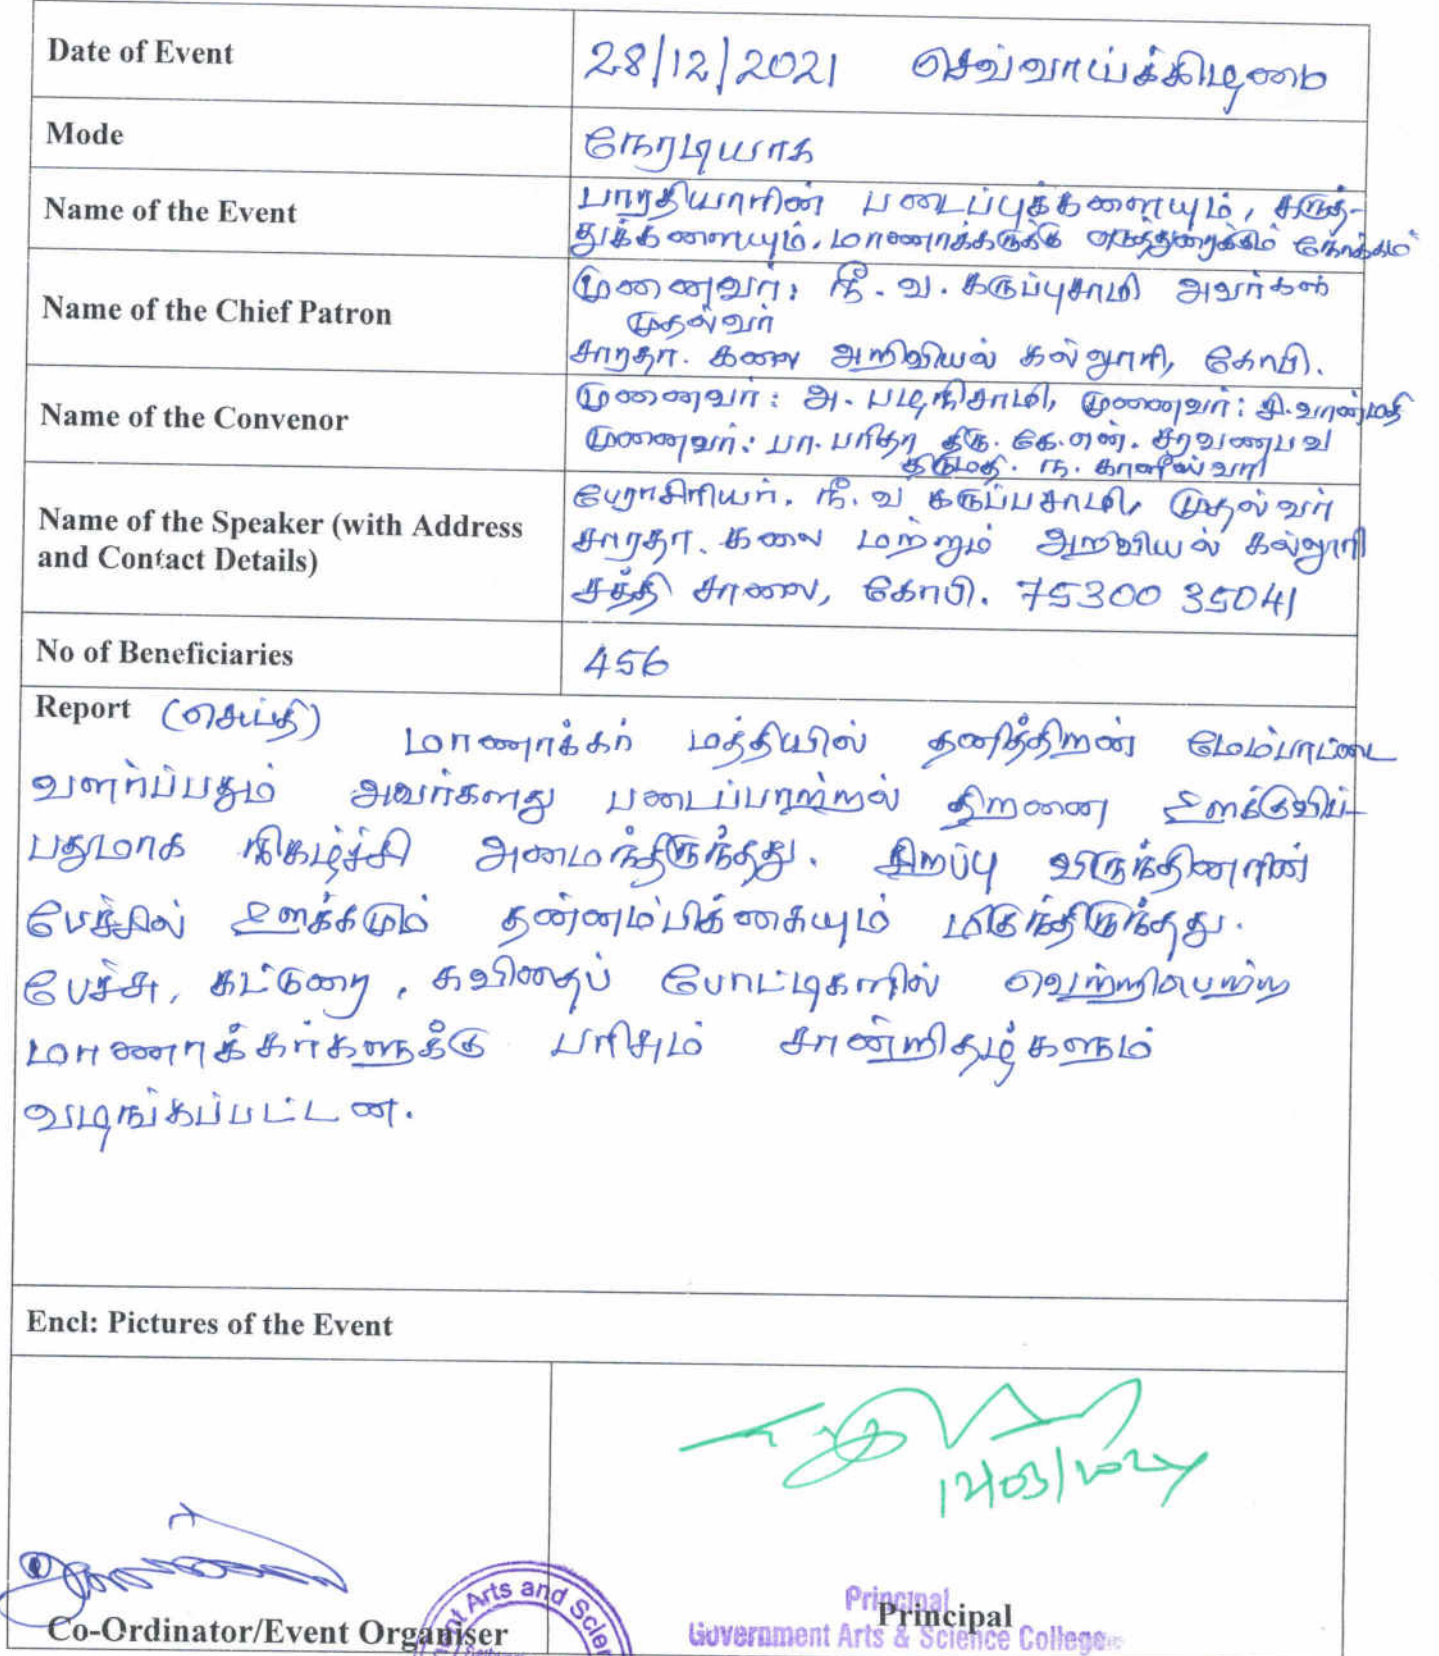 Date of Event 28/12/2021 செவ்வாய்க்கிழமை
Mode நேரடியாக
Name of the Event பாரதியாரின் படைப்புக்களையும், கருத்-
துக்களையும். மாணாக்கருக்கு எடுத்துரைக்கும் நோக்கம்
Name of the Chief Patron முனைவர்: நீ. வ. கருப்புசாமி அவர்கள்
முதல்வர்
சாரதா. கலை அறிவியல் கல்லூரி, கோபி.
Name of the Convenor முனைவர்: அ. பழநிசாமி, முனைவர்: சி. வான்மதி
முனைவர்: பா. பரிதா திரு. கே. என். சரவணபவ
திருமதி. ந. காளீஸ்வரி
Name of the Speaker (with Address and Contact Details) பேராசிரியர். நீ. வ கருப்பசாமி, முதல்வர்
சாரதா. கலை மற்றும் அறிவியல் கல்லூரி
சத்தி சாலை, கோபி. 75300 35041
No of Beneficiaries 456
Report (செய்தி) மாணாக்கர் மத்தியில் தனித்திறன் மேம்பாட்டை
வளர்ப்பதும் அவர்களது படைப்பாற்றல் திறனை ஊக்குவிப்-
பதுமாக நிகழ்ச்சி அமைந்திருந்தது. சிறப்பு விருந்தினரின்
பேச்சில் ஊக்கமும் தன்னம்பிக்கையும் மிகுந்திருந்தது.
பேச்சு, கட்டுரை, கவிதைப் போட்டிகளில் வெற்றிபெற்ற
மாணாக்கர்களுக்கு பரிசும் சான்றிதழ்களும்
வழங்கப்பட்டன.
Encl: Pictures of the Event
Co-Ordinator/Event Organiser
Arts and
Principal
Principal
Government Arts & Science College